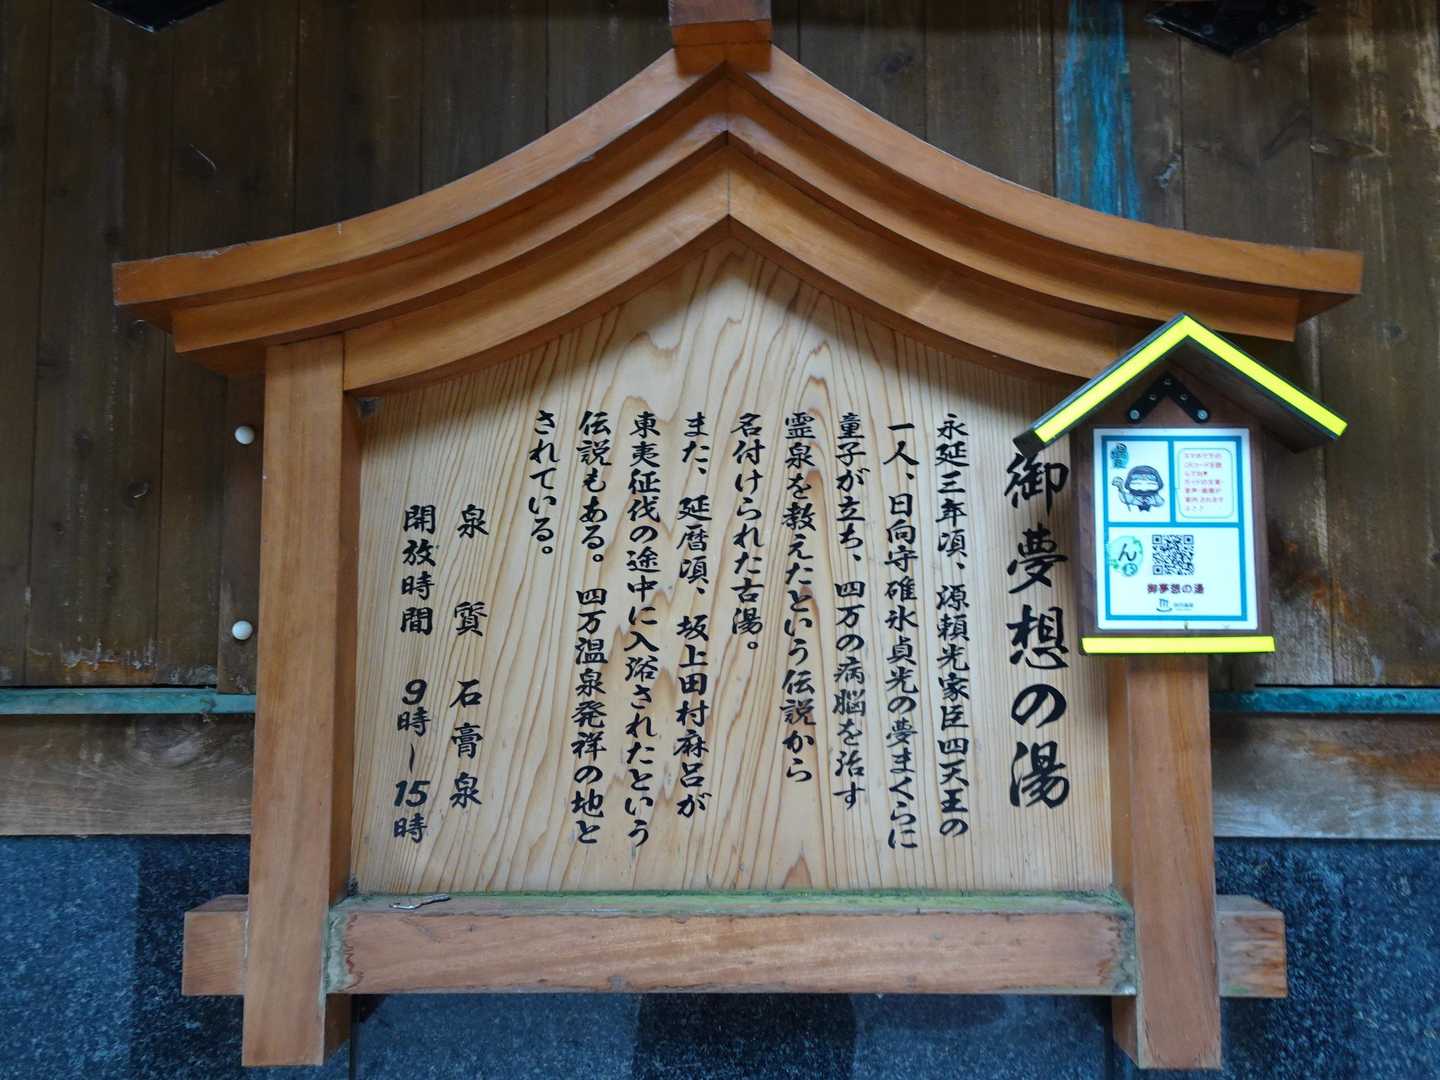 御夢想の湯
永延三年頃、源頼光家臣四天王の
一人、日向守碓氷貞光の夢まくらに
童子が立ち、四万の病脳を治す
霊泉を教えたという伝説から
名付けられた古湯。
また、延暦頃、坂上田村麻呂が
東夷征伐の途中に入浴されたという
伝説もある。四万温泉発祥の地と
されている。
泉質 石膏泉
開放時間 9時〜15時
ん
御夢想の湯